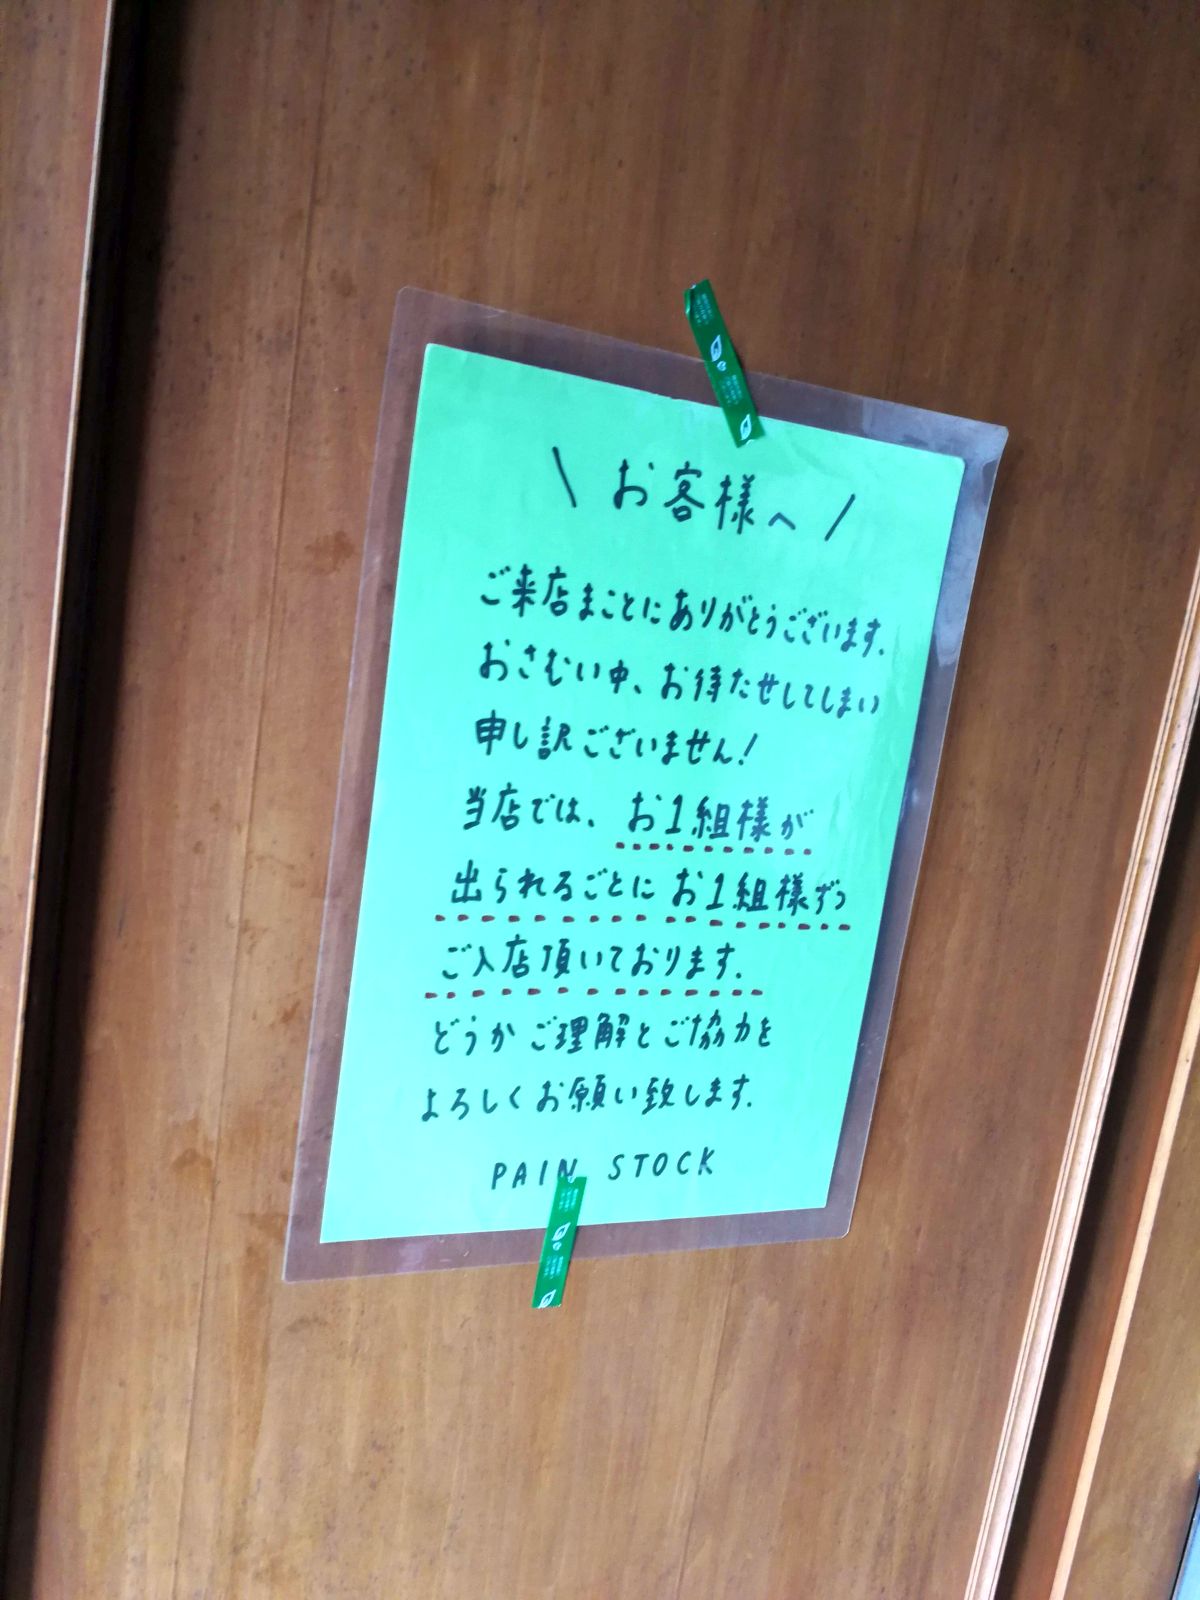 \ お客様へ /
ご来店まことにありがとうございます.
おさむい中、お待たせしてしまい
申し訳ございません!
当店では、お1組様が
出られるごとにお1組様ずつ
ご入店頂いております.
どうかご理解とご協力を
よろしくお願い致します.
PAIN STOCK